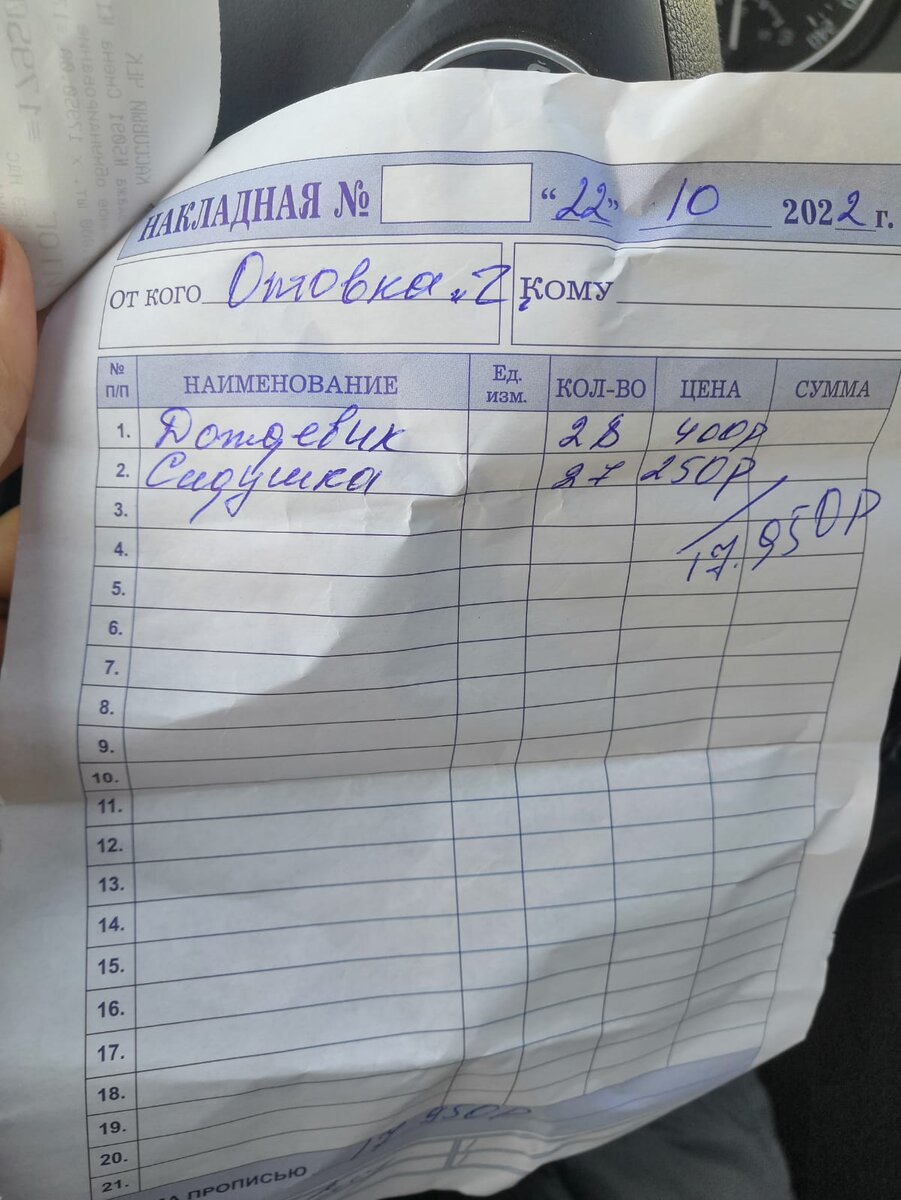 НАКЛАДНАЯ № “22” 10 2022 г.
ОТ КОГО Отовка КОМУ
№ П/П НАИМЕНОВАНИЕ Ед. изм. КОЛ-ВО ЦЕНА СУММА
1. Дождевик 28 400р
2. Сидушка 27 250р
3. 17.950р
4.
5.
6.
7.
8.
9.
10.
11.
12.
13.
14.
15.
16.
17.
18.
19.
20.
21.
ПРОПИСЬЮ 17 950р